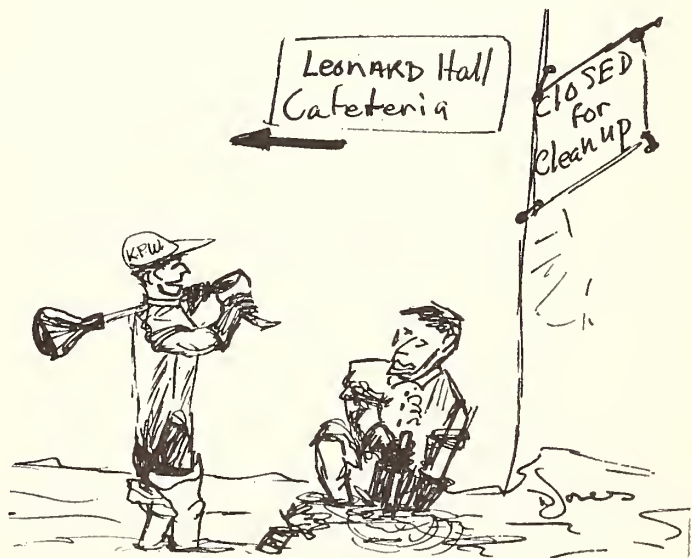 LEONARD Hall
Cafeteria
CLOSED
for
Clean up
KPW
D Jones